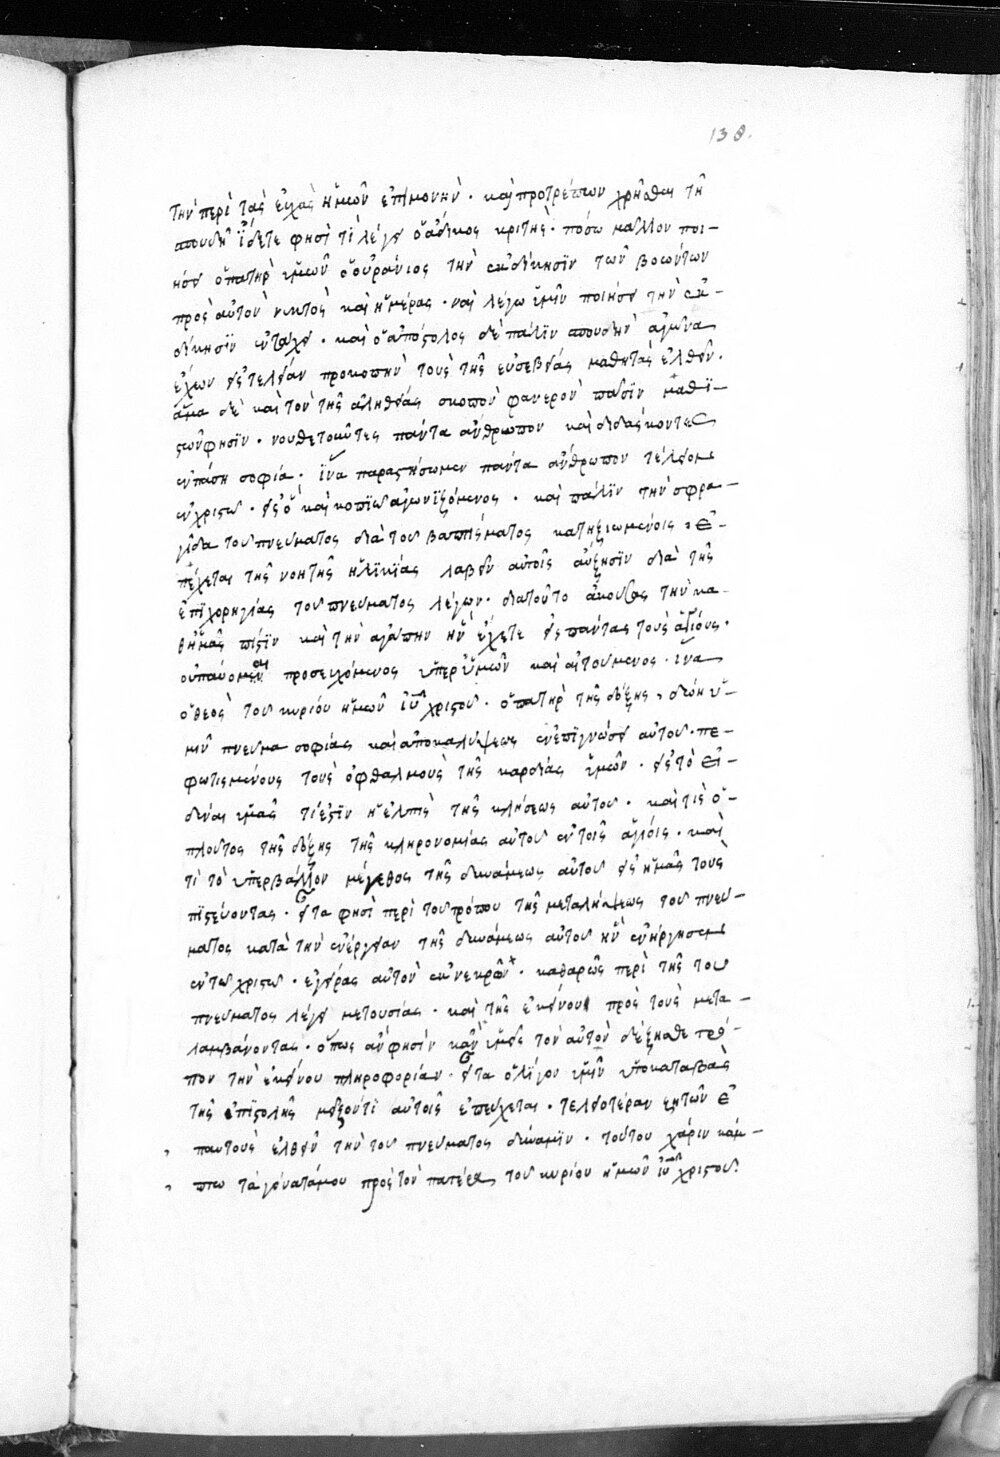 138.
τὴν περὶ τὰς εὐχὰς ἡμῶν ἐπιμονὴν · καὶ προτρέπων χρῆσθαι τῇ
σπουδῇ ἴδετε φησὶ τί λέγει ὁ ἄδικος κριτὴς · πόσω μᾶλλον ποι-
ήσει ὁ πατὴρ ὑμῶν ὁ οὐράνιος τὴν ἐκδίκησϊν τῶν βοώντων
πρὸς αὐτὸν νυκτὸς καὶ ἡμέρας · ναὶ λέγω ὑμῖν ποιήσει τὴν ἐκ-
δίκησϊν ἐν τάχει · καὶ ὁ ἀπόστολος δὲ πάλϊν σπουδὴν ἀγῶνα
ἔχων εἰς τελείαν προκοπὴν τοὺς τῆς εὐσεβείας μαθητὰς ἐλθεῖν ·
ἅμα δὲ καὶ τὸν τῆς ἀληθείας σκοπὸν φανερὸν πᾶσϊν καθϊ-
στῶν φησϊν · νουθετοῦντες πάντα ἄνθρωπον καὶ διδάσκοντες
ἐν πάση σοφία · ἵνα παραστήσωμεν πάντα ἄνθρωπον τέλειον
ἐν χριστῶ · εἰς ὃ καὶ κοπϊῶ ἀγωνϊζόμενος · καὶ πάλϊν τὴν σφρα-
γῖδα τοῦ πνεύματος διὰ τοῦ βαπτίσματος κατηξιωμένοις, ἐ-
πεύχεται τῆς νοητῆς ἡλϊκίας λαβεῖν αὐτοῖς αὔξησϊν διὰ τῆς
ἐπϊχορηγίας τοῦ πνεύματος λέγων · διὰ τοῦτο ἀκούσας τὴν κα-
θ' ἡμᾶς πίστϊν καὶ τὴν ἀγάπην ἣν ἔχετε εἰς πάντας τοὺς ἁγίους ·
οὐ παύομαι προσευχόμενος ὑπὲρ ὑμῶν καὶ αἰτούμενος · ἵνα
ὁ θεὸς τοῦ κυρίου ἡμῶν ἰῦ χριστοῦ · ὁ πατὴρ τῆς δόξης, δώη ὑ-
μῖν πνεῦμα σοφίας καὶ ἀποκαλύψεως ἐν ἐπϊγνώσει αὐτοῦ · πε-
φωτισμένους τοὺς ὀφθαλμοὺς τῆς καρδίας ὑμῶν · εἰς τὸ εἰ-
δέναι ὑμᾶς τίς ἐστϊν ἡ ἐλπὶς τῆς κλήσεως αὐτοῦ · καὶ τίς ὁ
πλοῦτος τῆς δόξης τῆς κληρονομίας αὐτοῦ ἐν τοῖς ἁγίοις · καὶ
τί τὸ ὑπερβάλλον μέγεθος τῆς δυνάμεως αὐτοῦ εἰς ἡμᾶς τοὺς
πϊστεύοντας · εἶτα φησὶ περὶ τοῦ τρόπου τῆς μεταλήψεως τοῦ πνεύ-
ματος κατὰ τὴν ἐνέργειαν τῆς δυνάμεως αὐτοῦ ἣν ἐνήργησεν
ἐν τῶ χριστῶ · ἐγείρας αὐτὸν ἐκ νεκρῶν · καθαρῶς περὶ τῆς τοῦ
πνεύματος λέγει μετουσίας · καὶ τῆς ἐκείνου πρὸς τοὺς μετα-
λαμβάνοντας · ὅπως ἂν φησὶν καὶ ὑμεῖς τὸν αὐτὸν δέξησθε τρό-
πον τὴν ἐκείνου πληροφορίαν · εἶτα ὀλίγον ὑμῖν ὑποκαταβὰς
τῆς ἐπϊστολῆς μείζονά τι αὐτοῖς ἐπεύχεται · τελειοτέραν ζητῶν ἐ
π' αὐτοὺς ἐλθεῖν τὴν τοῦ πνεύματος δύναμϊν · τούτου χάριν κάμ-
πτω τὰ γόνατά μου πρὸς τὸν πατέρα τοῦ κυρίου ἡμῶν ἰῦ χριστοῦ ·